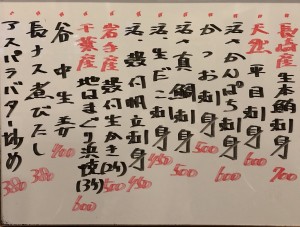 長崎産 生本鮪刺身 700
天然 平目刺身
活〆かんぱち刺身 600
かつお刺身 500
活〆真鯛刺身 500
活生だこ刺身 450
活殻付帆立刺身 450
岩手産 殻付生かき(2ケ) 500
千葉産 地はまぐり浜焼(3ケ) 600
谷中生姜 400
長ナス煮びたし 380
アスパラバター炒め 380